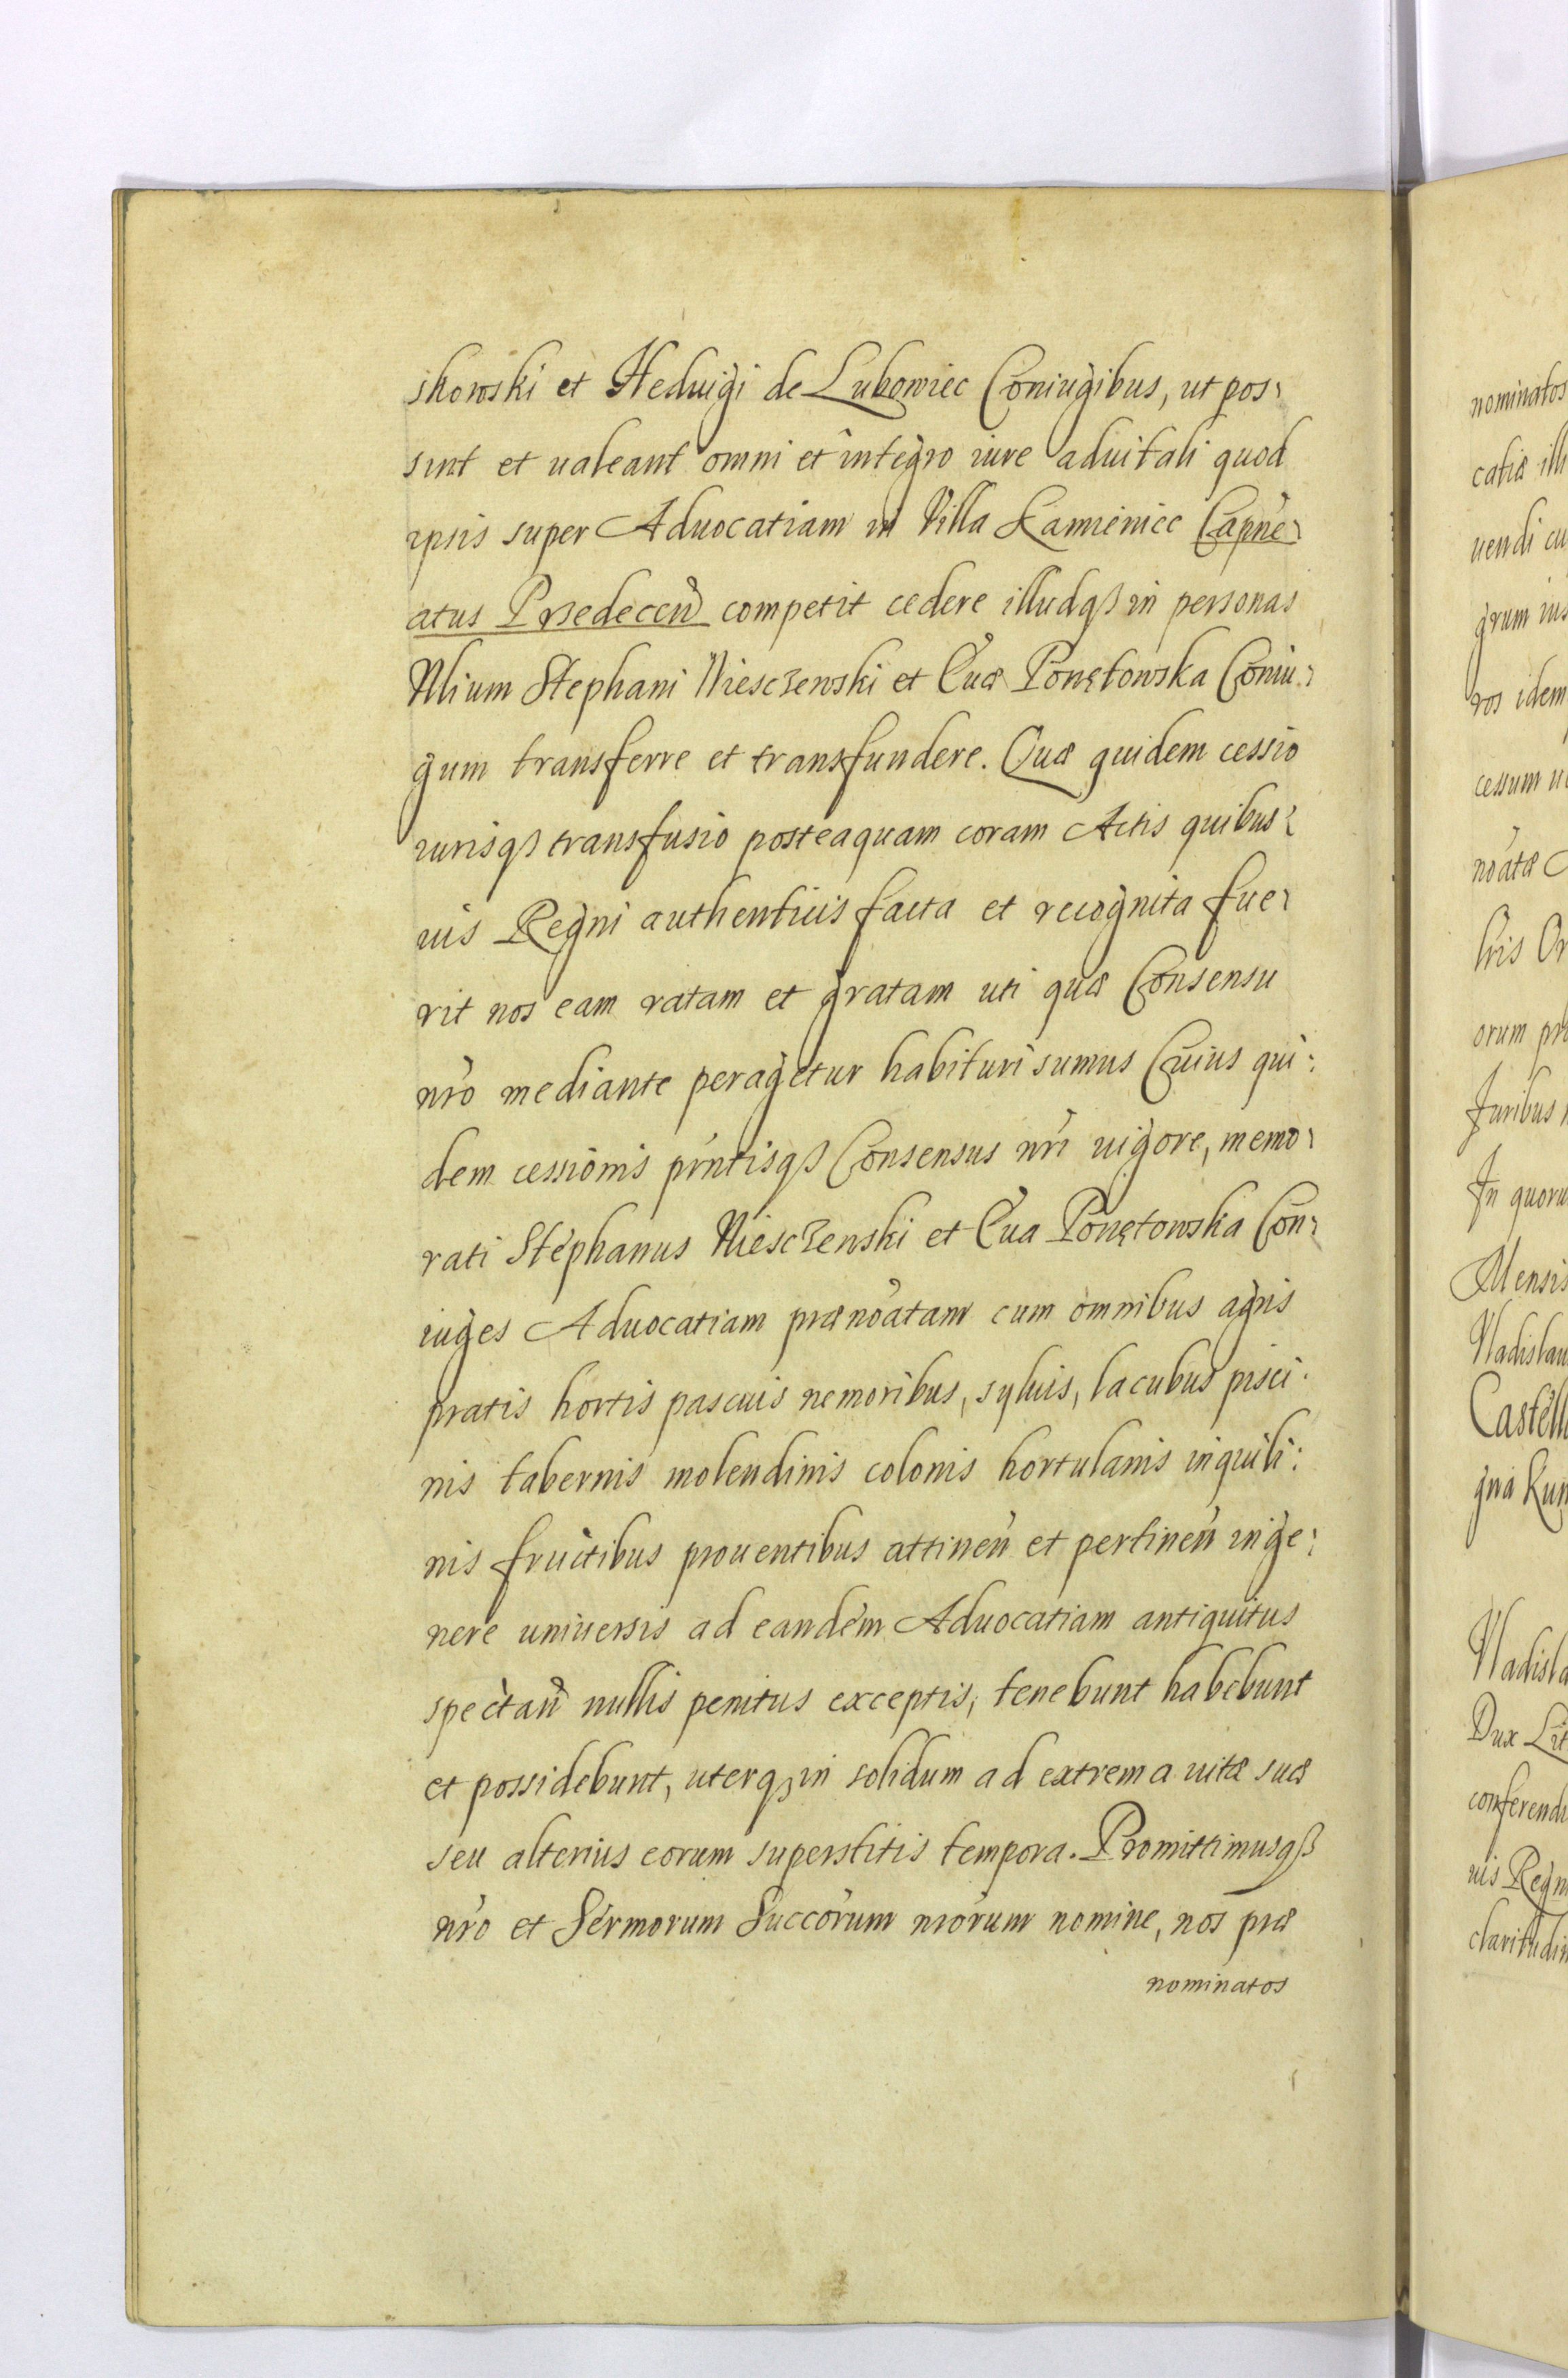 skowski et Heduigi de Lubowiec Coniugibus, ut pos:
sint et ualeant omni et integro iure aduitali quod
ipsis super Aduocatiam in Villa Kamienicc Capne:
atus Prsedeceñ competit cedere illudqꝫ in personas
Nlium Stephani Niesczewski et Euæ Ponętowska Coniu:
gum transferre et transfundere. Quæ quidem cessio
iurisqꝫ transfusio posteaquam coram Actis quibus:
uis Regni authenticis facta et recognita fue:
rit nos eam ratam et gratam uti quæ Consensu
nr̃o mediante peragetur habituri sumus Cuius qui:
dem cessionis pr̃ntisqꝫ Consensus nr̃i uigore, memo:
rati Stephanus Niesczewski et Eua Ponętowska Con:
iuges Aduocatiam prænoãtam cum omnibus agris
pratis hortis pascuis nemoribus, syluis, lacubus pisci:
nis tabernis molendinis colonis hortulanis inquili:
nis fructibus prouentibus attineñ et pertineñ in ge:
nere uniuersis ad eandem Aduocatiam antiquitus
spectañ nullis penitus exceptis, tenebunt habebunt
et possidebunt, uterqꝫ in solidum ad extrema uitæ suæ
seu alterius eorum superstitis tempora. Promittimusqꝫ
nr̃o et Sermorum Succorum nrorum nomine, nos præ
nominatos
nominatos
catiæ illi
uendi cu
grum ius
ros idem
cessum
noatæ
orum
Juribus
In quoru
Mensis
Vladislau
Castell
gna Kun
Vladisla
Dux Lit
conferend
uis Regn
claritudin